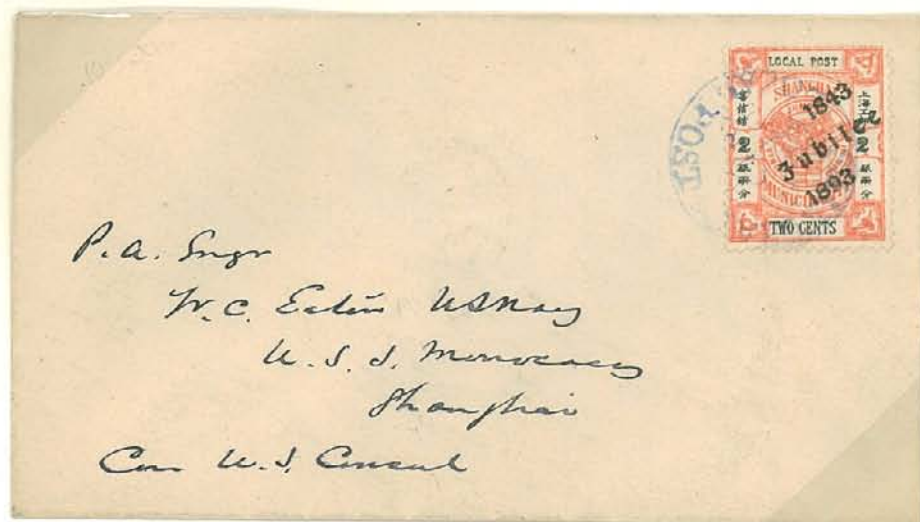 LOCAL POST
SHANGHAI
1843
Jubilee
1893
2 2
MUNICIPAL
TWO CENTS
POST
P.A. Engr
W.C. Eaton USNavy
U.S.S. Monocacy
Shanghai
Care U.S. Consul